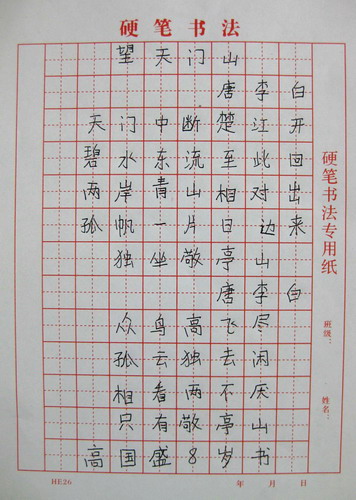 硬笔书法
望天门山
唐李白
天门中断楚江开
碧水东流至此回
两岸青山相对出
孤帆一片日边来
独坐敬亭山
唐李白
众鸟高飞尽
孤云独去闲
相看两不厌
只有敬亭山
高国盛8岁书
硬笔书法专用纸
班级:
姓名:
HE26
年 月 日